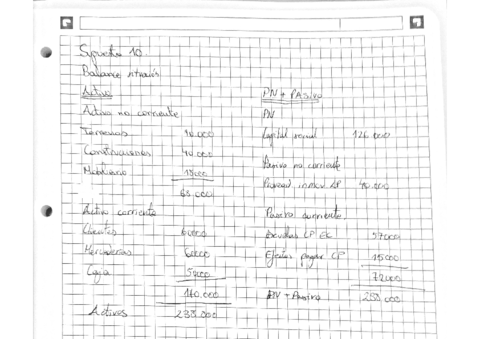 Supuesto 10
Balance
Activo
Activo no corriente
Terrenos 10.000
Construcciones 40.000
Mobiliario 18000
68.000
Activo corriente
Clientes
Mercaderías
Caja
140.000
Activos 238.000
PN + PAsivo
PN
Capital social 126.000
Pasivo no corriente
inmov LP 40.000
Pasivo corriente
Deudas CP EC 57000
Efectos pagar CP 15000
72000
PN + Pasivo 238.000